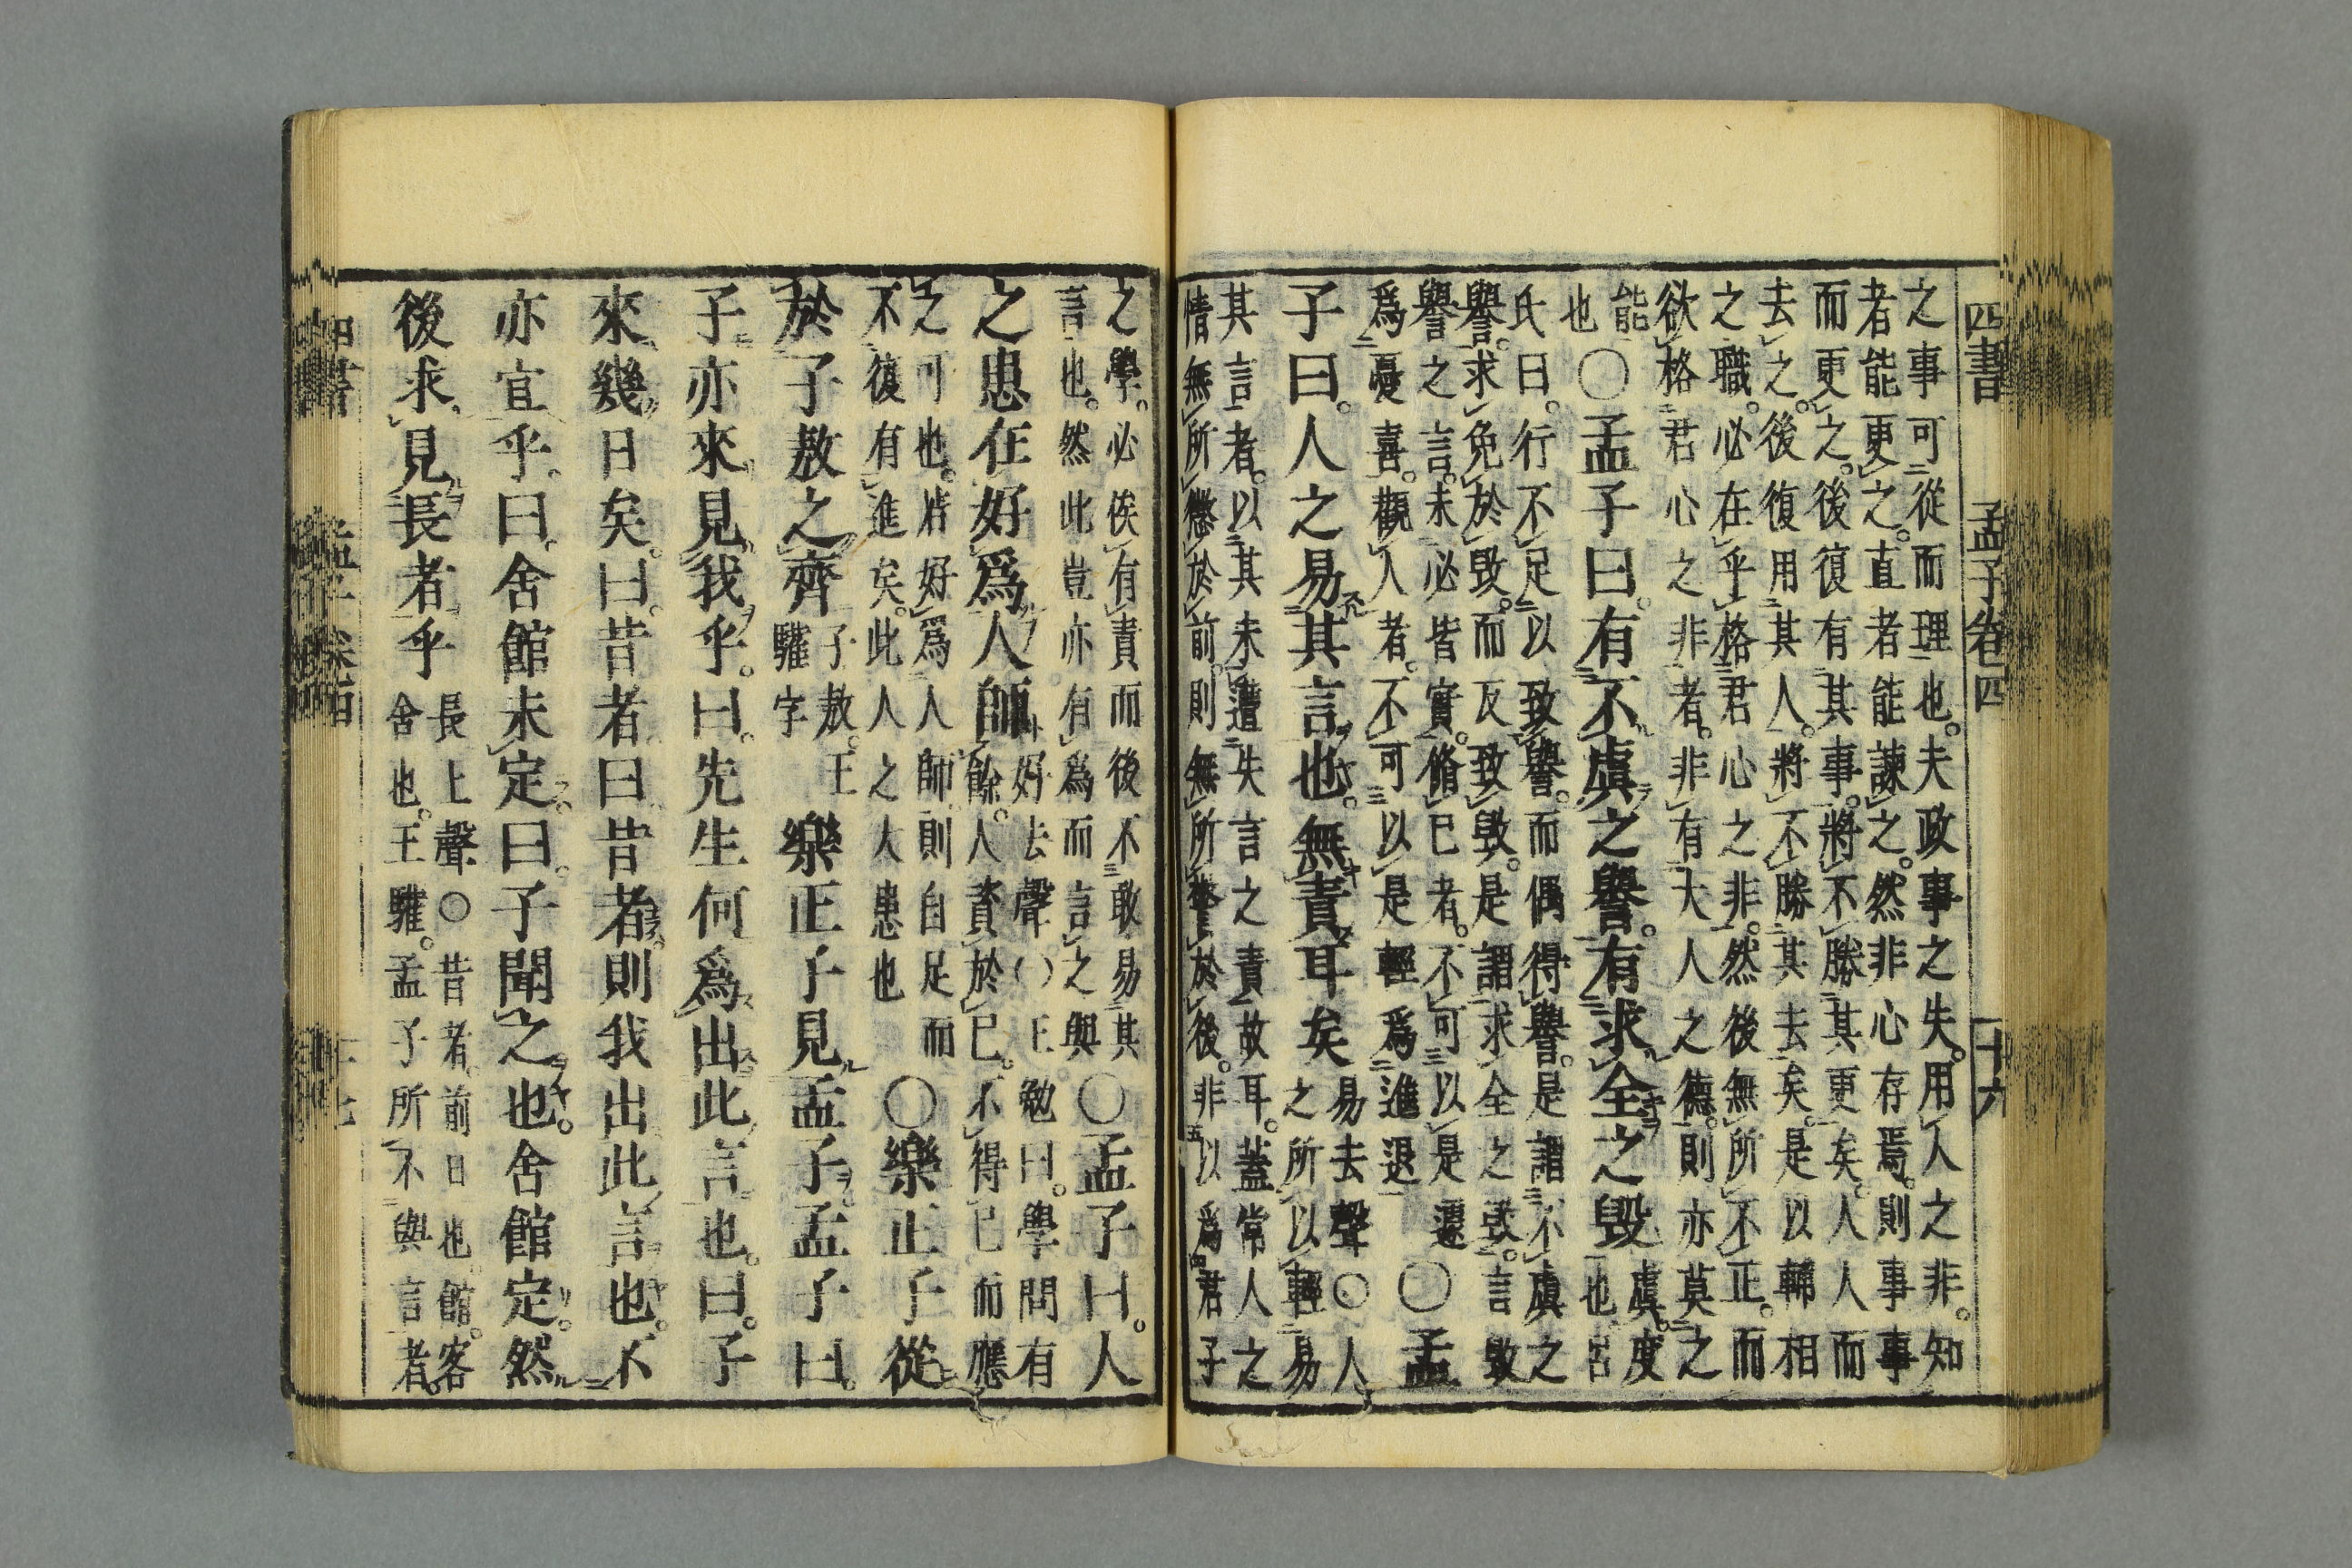 四書 孟子卷四 二十六
之事可從而理也。夫政事之失。用人之非。知
者能更之。直者能諫之。然非心存焉。則事事
而更之。後復有其事。將不勝其更矣。人人而
去之。後復用其人。將不勝其去矣。是以輔相
之職。必在乎格君心之非。然後無所不正。而
欲格君心之非者。非有大人之德。則亦莫之
能
也
○孟子曰。有不虞之譽。有求全之毀
虞。度
也。呂
氏曰。行不足以致譽。而偶得譽。是謂不虞之
譽。求免於毀。而反致毀。是謂求全之毀。言毀
譽之言。未必皆實。脩己者。不可以是遽
爲憂喜。觀人者。不可以是輕爲進退
○孟
子曰。人之易其言也。無責耳矣
易去聲○人
之所以輕易
其言者。以其未遭失言之責故耳。蓋常人之
情無所懲於前。則無所警於後。非以爲君子
之學。必俟有責而後不敢易其
言也。然此豈亦有爲而言之與
○孟子曰。人
之患在好爲人師
好去聲○王勉曰。學問有
餘。人資於己。不得已而應
之可也。若好爲人師則自足而
不復有進矣。此人之大患也
○樂正子從
於子敖之齊
子敖。王
驩字
樂正子見孟子。孟子曰。
子亦來見我乎。曰。先生何爲出此言也。曰。子
來幾日矣。曰。昔者。曰。昔者。則我出此言也。不
亦宜乎。曰。舍館未定。曰。子聞之也。舍館定。然
後求見長者乎
長上聲○昔者。前日也。館。客
舍也。王驩。孟子所不與言者。